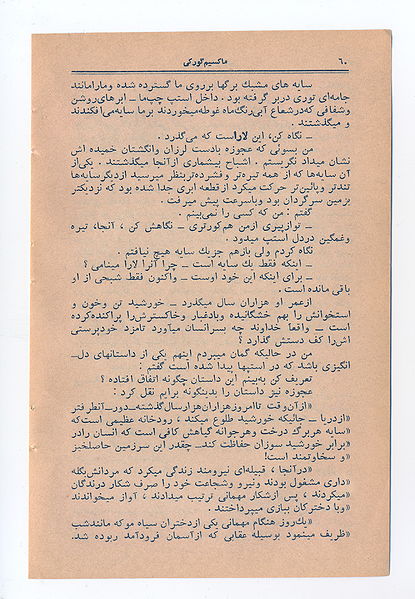 ۶۰ ماکسیم گورکی
سایه های مشبك برگها برروی ما گسترده شده ومارامانند
جامه‌ای توری دربر گرفته بود. داخل استپ چپ‌ما ــ ابرهای‌روشن
وشفافی که‌درشعاع آبی‌رنگ‌ماه غوطه‌میخوردند برما سایه‌می‌افکندند
و میگذشتند.
ــ نگاه کن، این لاراست که می‌گذرد.
من بسوئی که عجوزه بادست لرزان وانگشتان خمیده اش
نشان میداد نگریستم. اشباح بیشماری ازآنجا میگذشتند. یکی‌از
آن سایه‌ها که از همه تیره‌تر و فشرده‌تربنظر میرسید ازدیگرسایه‌ها
تندتر وپائین‌تر حرکت میکرد ازقطعه ابری جدا شده بود که نزدیکتر
بزمین سرگردان بود وباسرعت پیش میرفت.
گفتم: من که کسی را نمی‌بینم.
ــ توازپیری ازمن هم‌کورتری ــ نگاهش کن، آنجا، تیره
وغمگین دردل استپ میدود.
نگاه کردم ولی بازهم جزیك سایه هیچ نیافتم.
ــ اینکه فقط یك سایه است ــ چرا آنرا لارا مینامی؟
ــ برای اینکه این خود اوست ــ واکنون فقط شبحی از او
باقی مانده است.
ازعمر او هزاران سال میگذرد ــ خورشید تن وخون و
استخوانش را بهم خشگانیده وبادغبار وخاکسترش‌را پراکنده‌کرده
است ــ واقعاً خداوند چه بسرانسان میآورد تامزد خودپرستی
اش‌را کف دستش گذارد؟
من در حالیکه گمان میبردم اینهم یکی از داستانهای دل‌ــ
انگیزی باشد که در استپها پیدا شده است گفتم:
تعریف کن به‌بینم این داستان چگونه اتفاق افتاده؟
عجوزه نیز داستان را بدینگونه برایم نقل کرد:
«ازآن‌وقت تاامروزهزاران‌هزارسال‌گذشته‌ــدورــآنطرفتر
«ازدریا ــ جائیکه خورشید طلوع میکند، رودخانه عظیمی است‌که
«سایه هربرگ درخت وهرجوانه گیاهش کافی است که انسان رادر
«برابر خورشید سوزان حفاظت کند ــ چقدر این سرزمین حاصلخیز
«و سخاوتمند است!
«درآنجا، قبیله‌ای نیرومند زندگی میکرد که مردانش‌بگله
«داری مشغول بودند ونیرو وشجاعت خود را صرف شکار درندگان
«میکردند، پس ازشکار مهمانی ترتیب میدادند، آواز میخواندند
«وبا دخترکان ببازی میپرداختند.
«یك‌روز هنگام مهمانی یکی ازدختران سیاه موکه مانندشب
«ظریف مینمود بوسیله عقابی که ازآسمان فرودآمد ربوده شد.